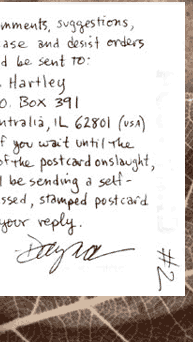 mments, suggestions,
ase and desist orders
d be sent to:
Hartley
O. Box 391
ntralia, IL 62801 (USA)
f you wait until the
of the postcard onslaught,
l be sending a self-
ssed, stamped postcard
your reply.
#2